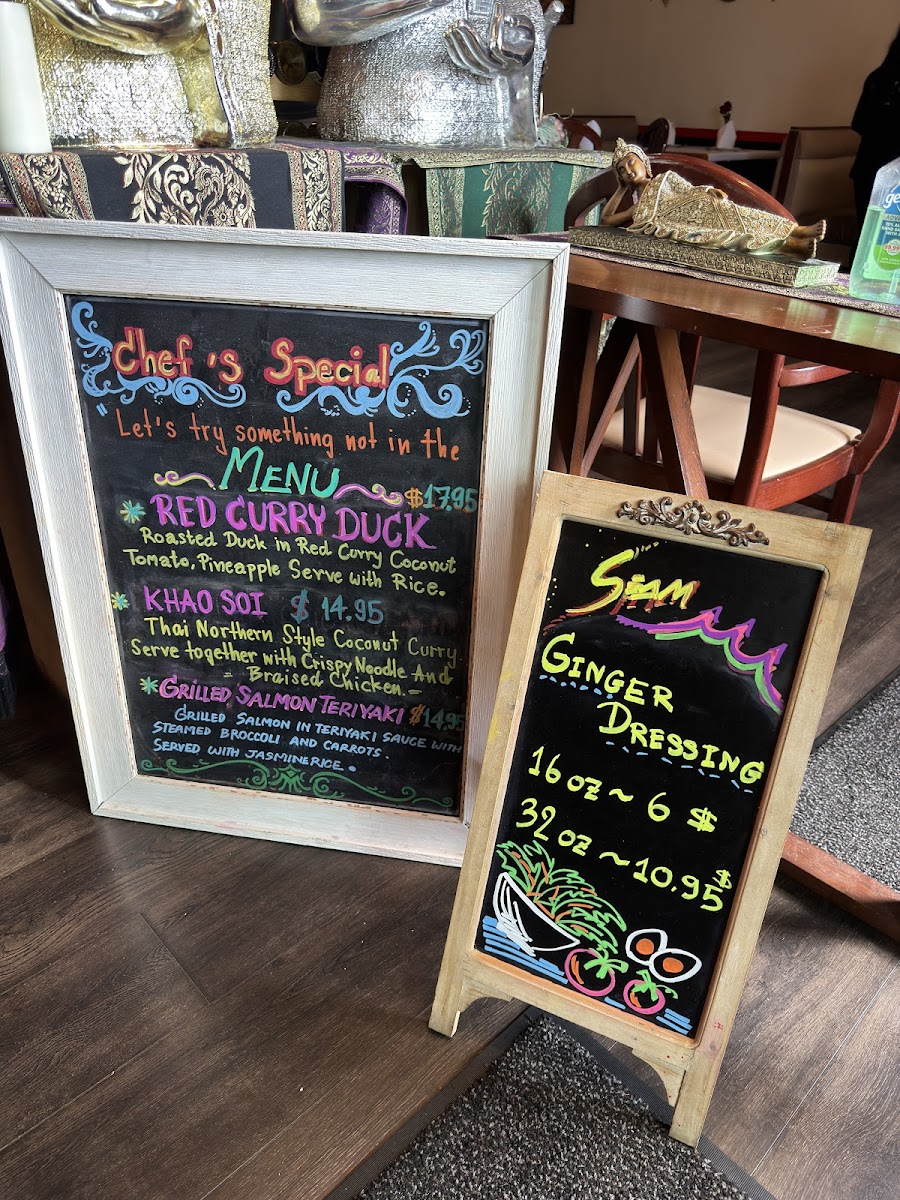 Chef's Special
"Let's try something not in the
MENU
$17.95
RED CURRY DUCK
Roasted Duck in Red Curry Coconut
Tomato, Pineapple Serve with Rice.
KHAO SOI $14.95
Thai Northern Style Coconut Curry
Serve together with Crispy Noodle And
- Braised Chicken. -
GRILLED SALMON TERIYAKI $14.95
GRILLED SALMON IN TERIYAKI SAUCE WITH
STEAMED BROCCOLI AND CARROTS.
SERVED WITH JASMINE RICE.
SIAM
GINGER
DRESSING
16 oz ~ 6 $
32 oz ~ 10.95 $